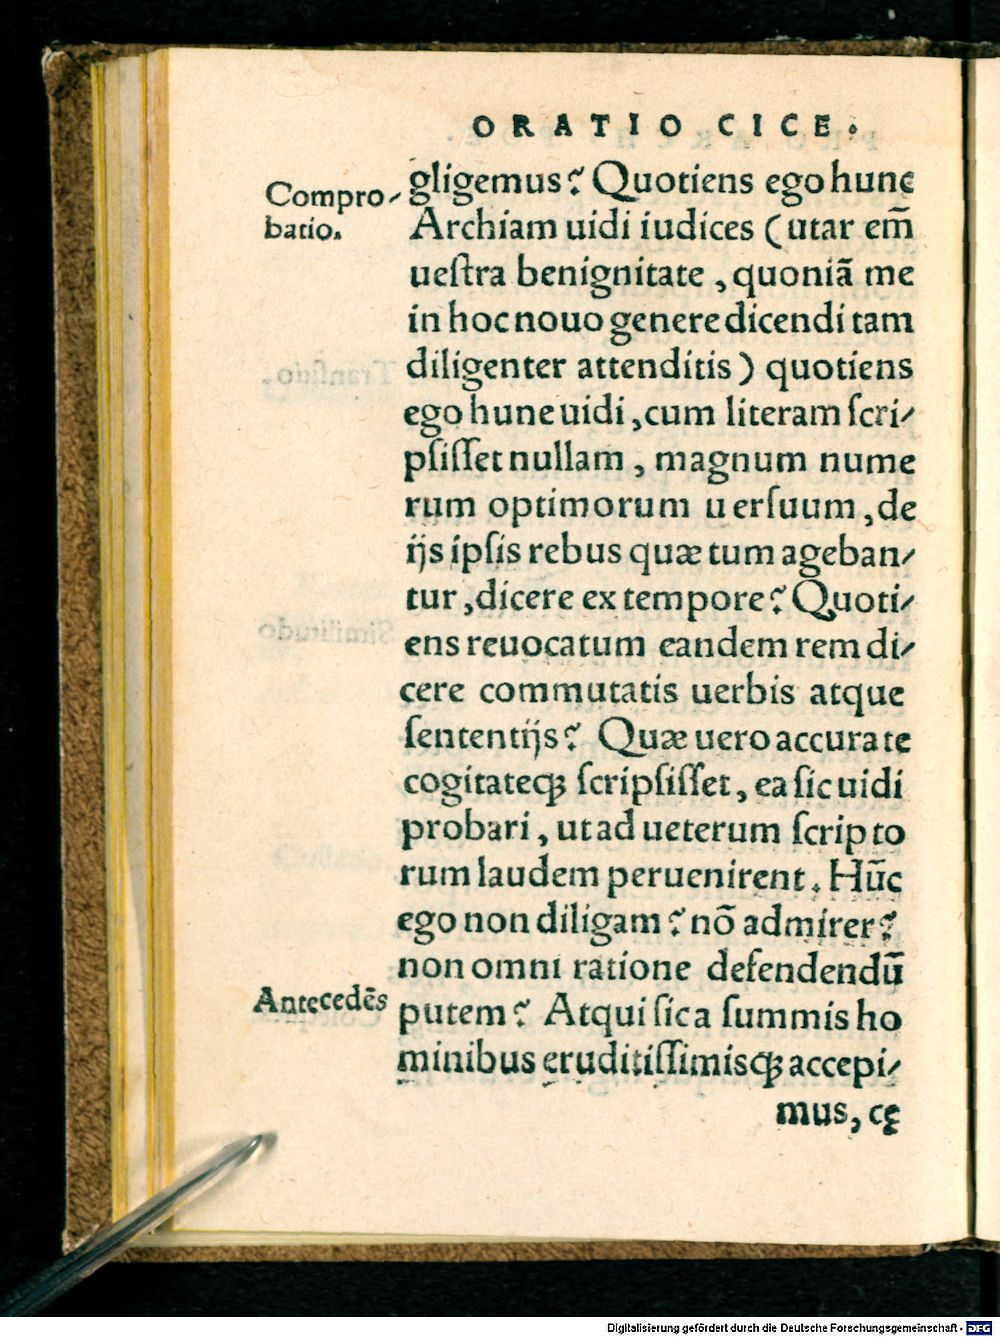 ORATIO CICE.
Compro-
batio.
gligemus? Quotiens ego hunc
Archiam uidi iudices (utar em̃
ueſtra benignitate, quoniã me
in hoc nouo genere dicendi tam
diligenter attenditis) quotiens
ego hunc uidi, cum literam ſcri-
pſiſſet nullam, magnum nume
rum optimorum uerſuum, de
ijs ipſis rebus quæ tum ageban-
tur, dicere ex tempore? Quoti-
ens reuocatum eandem rem di-
cere commutatis uerbis atque
ſententijs? Quæ uero accurate
cogitateqꝫ ſcripſiſſet, ea ſic uidi
probari, ut ad ueterum ſcripto
rum laudem peruenirent. Hũc
ego non diligam? nõ admirer?
non omni ratione defendendũ
Antecedẽs
putem? Atqui ſic a ſummis ho
minibus eruditiſſimisqꝫ accepi-
mus, cę
Digitalisierung gefördert durch die Deutsche Forschungsgemeinschaft - DFG